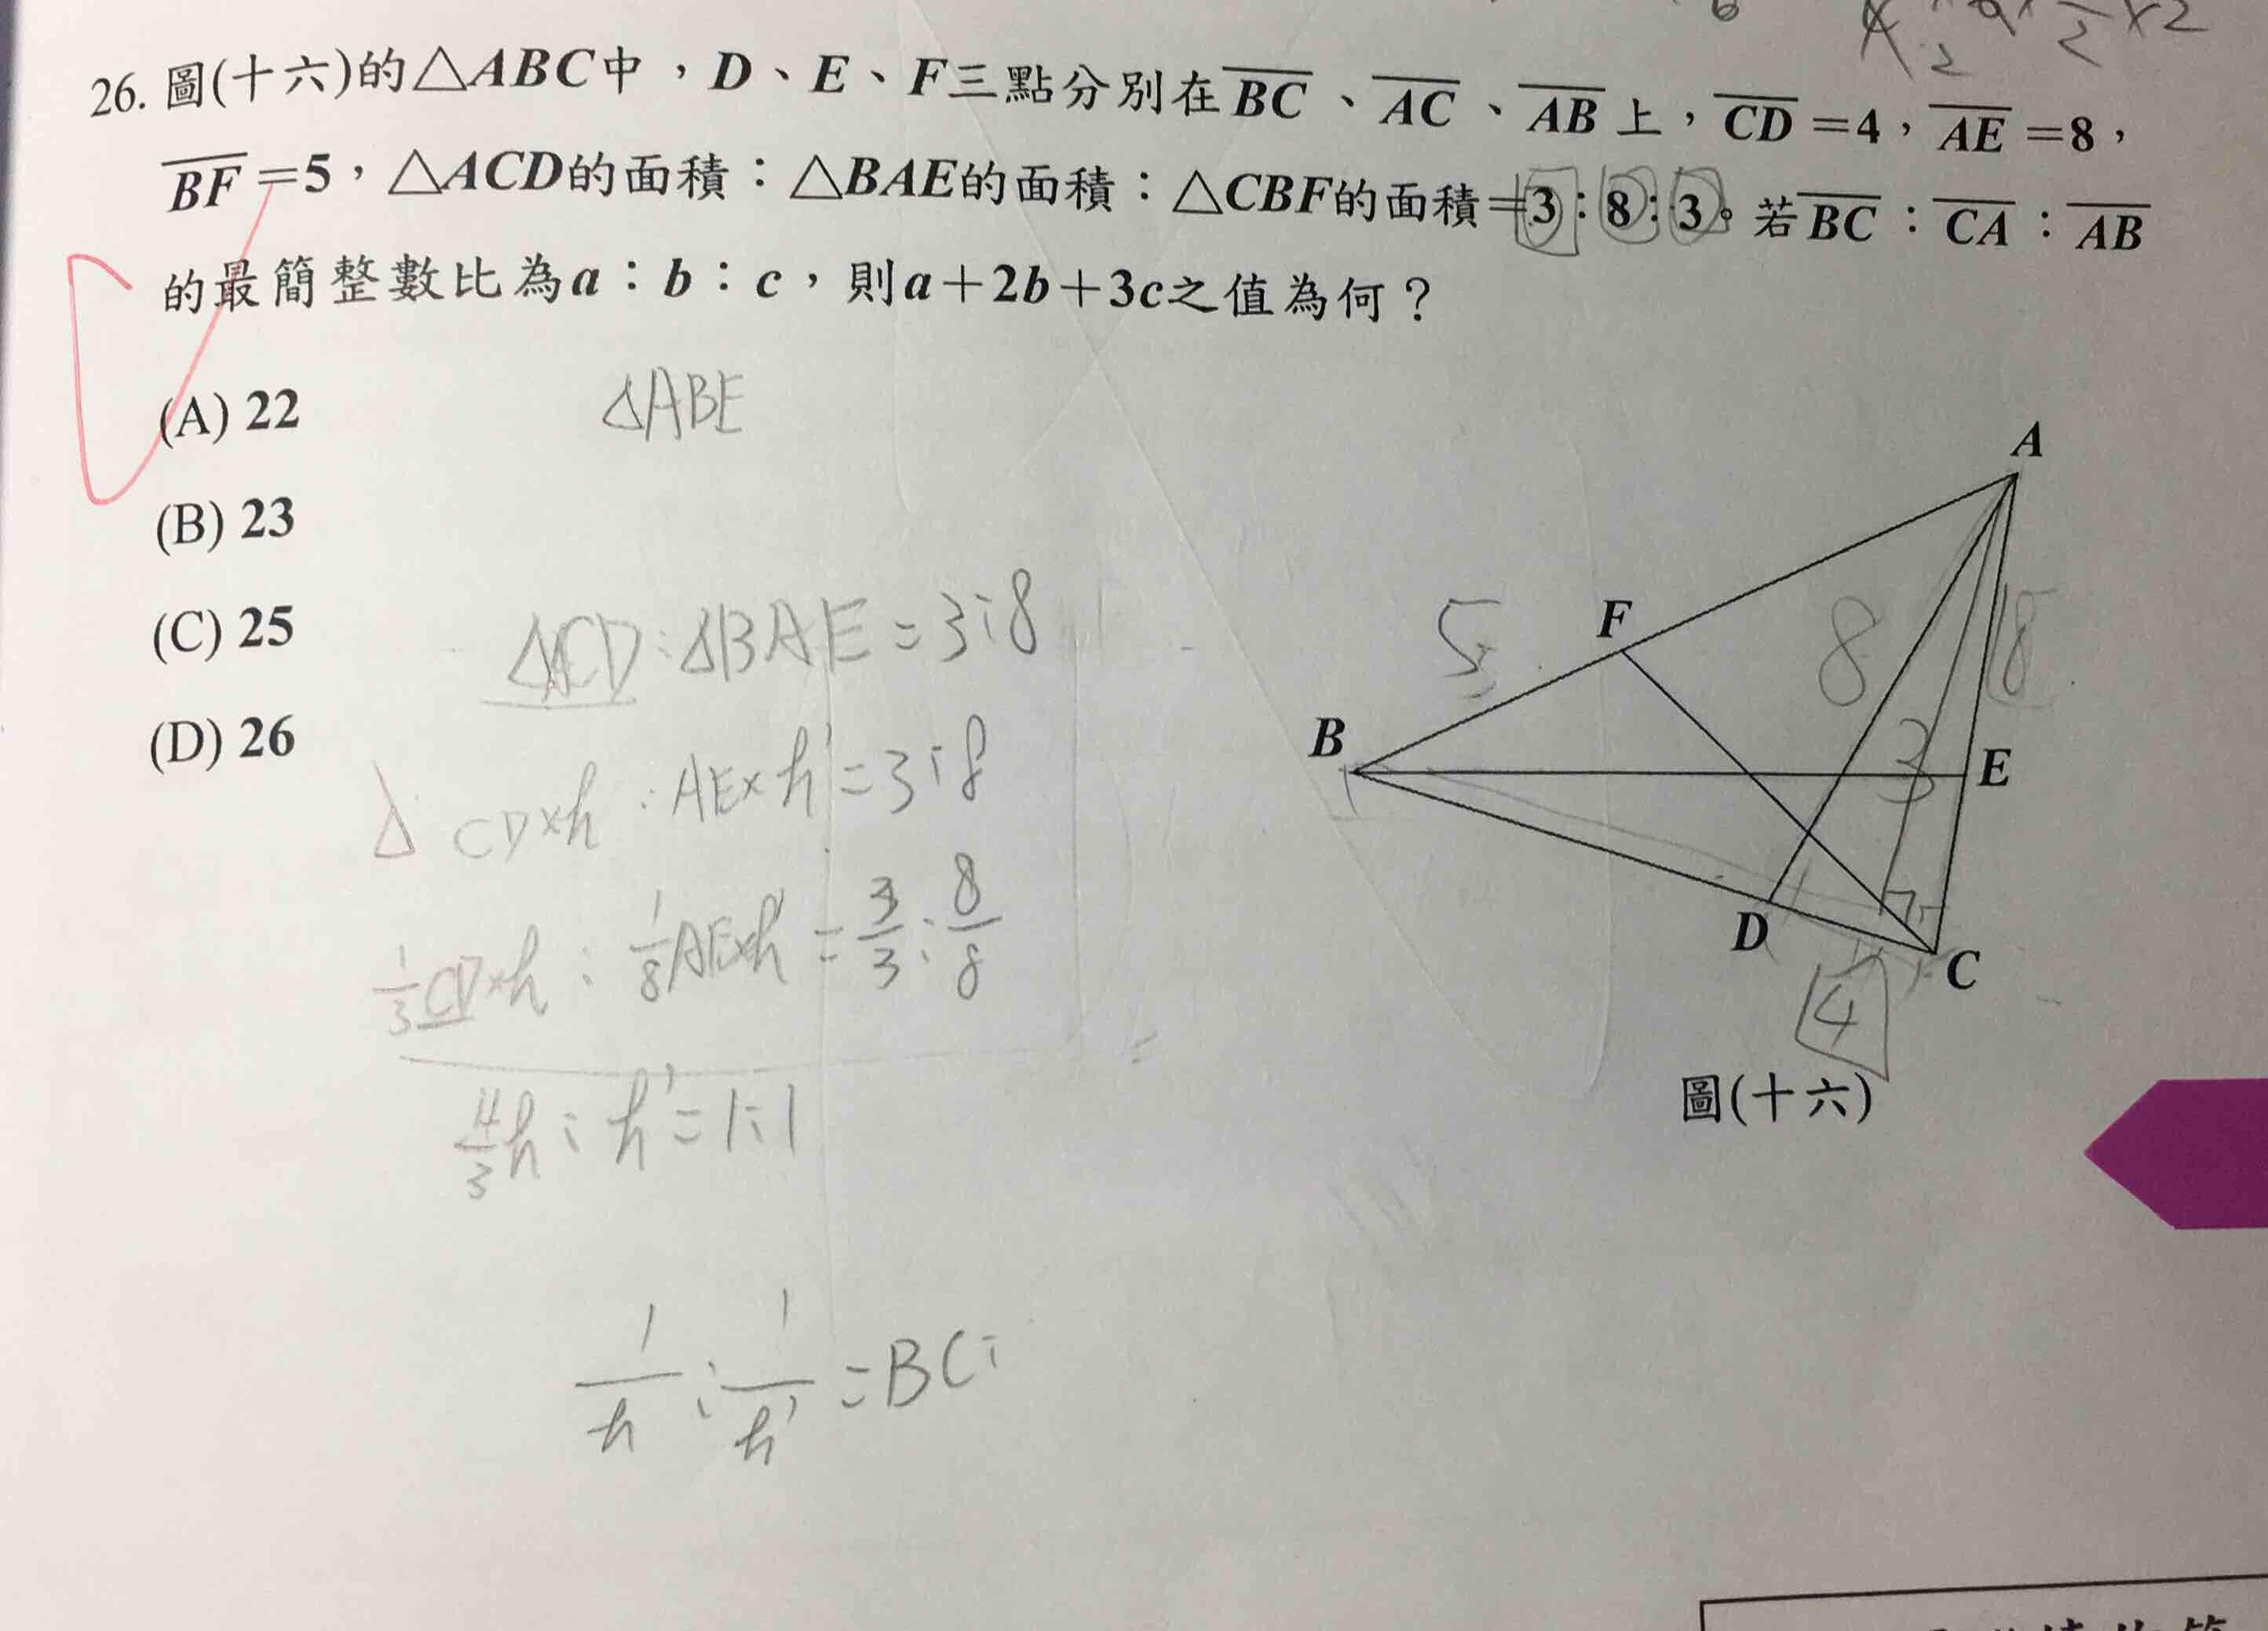 26. 圖(十六)的△ABC中，D、E、F三點分別在BC、AC、AB上，CD=4，AE=8，
BF=5，△ACD的面積：△BAE的面積：△CBF的面積=3：8：3。若BC：CA：AB
的最簡整數比為a：b：c，則a+2b+3c之值為何？
(A) 22
△ABE
(B) 23
(C) 25
(D) 26
△ACD:△BAE=3:8
△ CD×h:AE×h'=3:8
1/3CD×h:1/8AE×h'=3/3:8/8
4/3h:h'=1:1
1/h:1/h'=BC:
A
F
5
8
8
B
3
E
D
C
4
圖(十六)